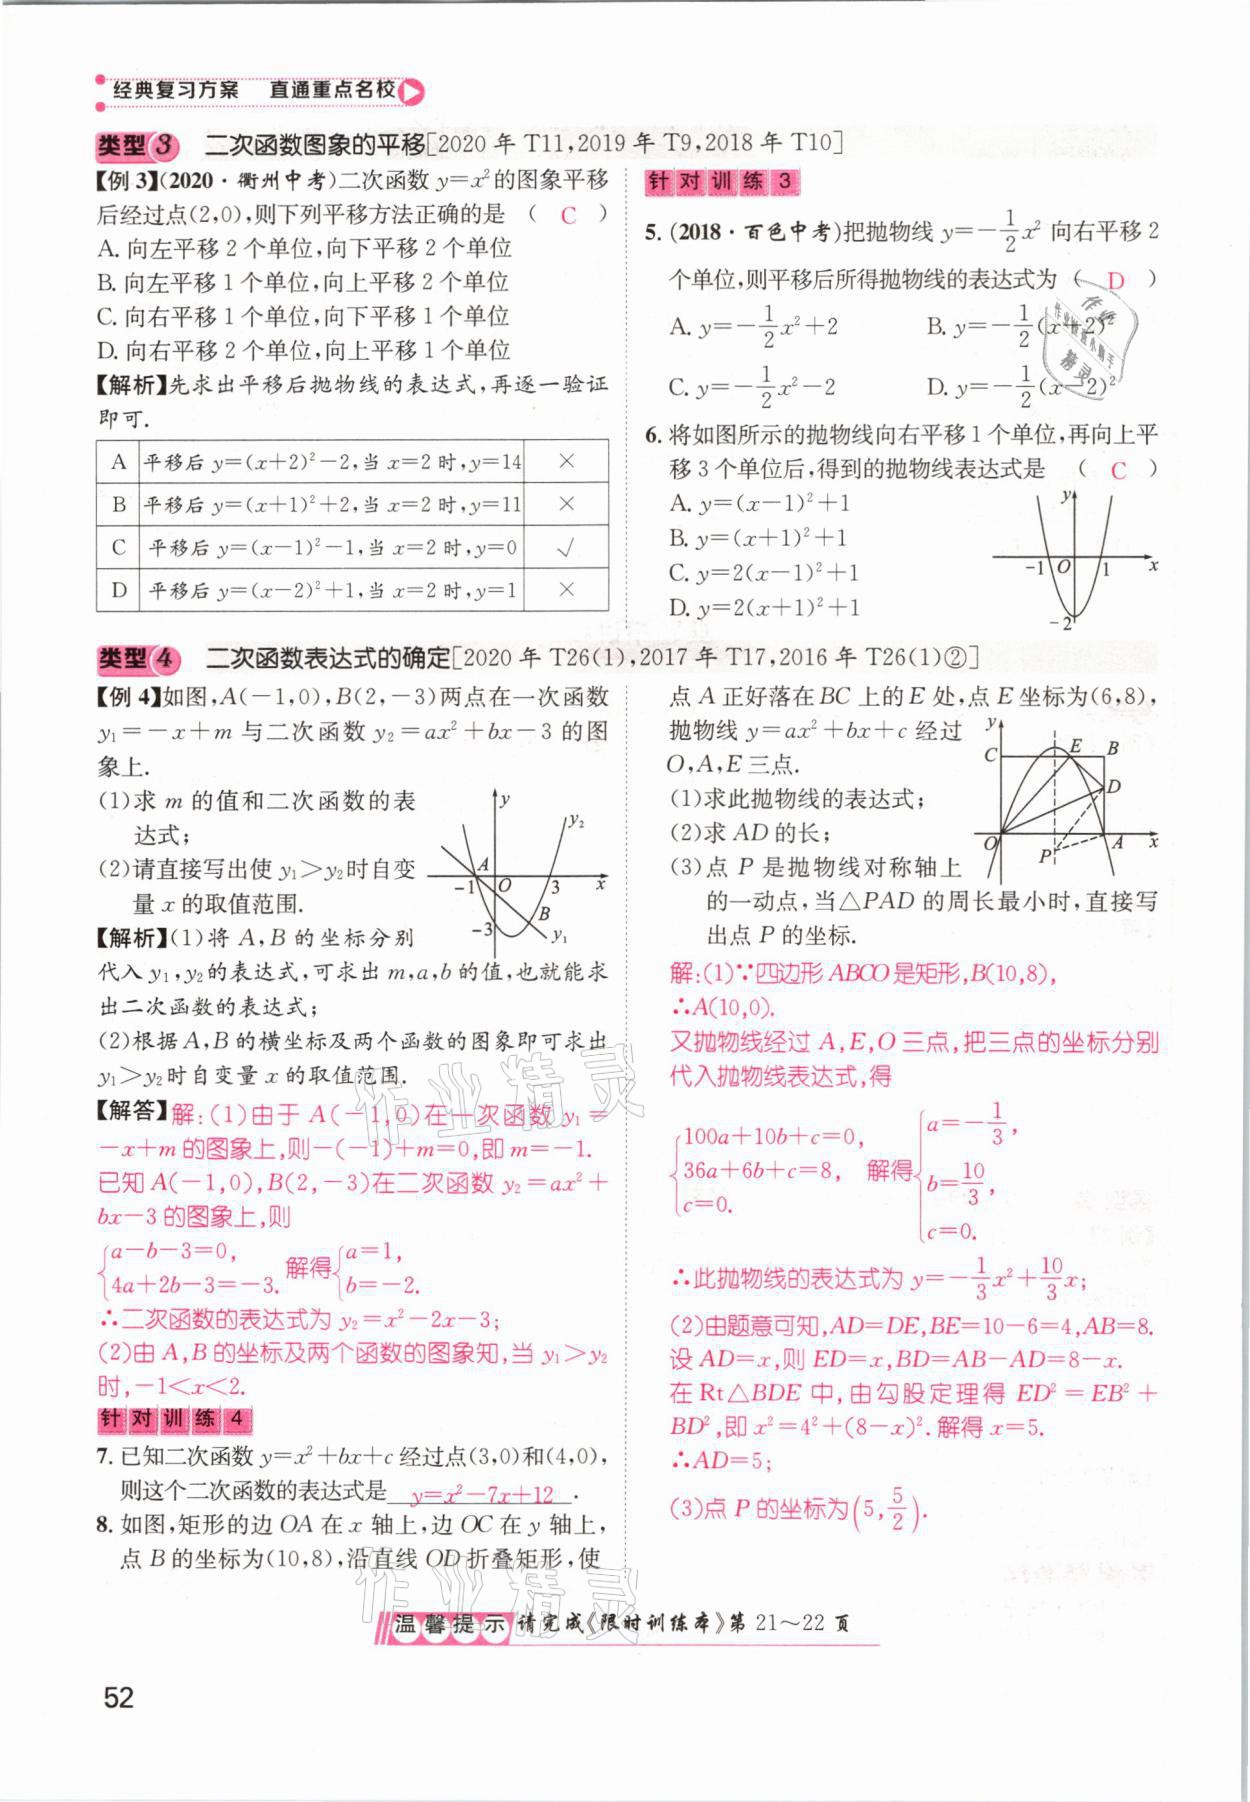 经典复习方案 直通重点名校
类型3 二次函数图象的平移[2020年T11,2019年T9,2018年T10]
【例3】(2020·衢州中考)二次函数y=x²的图象平移
后经过点(2,0),则下列平移方法正确的是 ( C )
A. 向左平移2个单位,向下平移2个单位
B. 向左平移1个单位,向上平移2个单位
C. 向右平移1个单位,向下平移1个单位
D. 向右平移2个单位,向上平移1个单位
【解析】先求出平移后抛物线的表达式,再逐一验证
即可.
A 平移后y=(x+2)²-2,当x=2时,y=14 ×
B 平移后y=(x+1)²+2,当x=2时,y=11 ×
C 平移后y=(x-1)²-1,当x=2时,y=0 √
D 平移后y=(x-2)²+1,当x=2时,y=1 ×
针对训练3
5. (2018·百色中考)把抛物线y=-1/2x²向右平移2
个单位,则平移后所得抛物线的表达式为 ( D )
A. y=-1/2x²+2 B. y=-1/2(x+2)²
C. y=-1/2x²-2 D. y=-1/2(x-2)²
6. 将如图所示的抛物线向右平移1个单位,再向上平
移3个单位后,得到的抛物线表达式是 ( C )
A. y=(x-1)²+1
B. y=(x+1)²+1
C. y=2(x-1)²+1
D. y=2(x+1)²+1
y
-1 O 1 x
-2
类型4 二次函数表达式的确定[2020年T26(1),2017年T17,2016年T26(1)②]
【例4】如图,A(-1,0),B(2,-3)两点在一次函数
y₁=-x+m与二次函数y₂=ax²+bx-3的图
象上.
(1)求m的值和二次函数的表
达式;
(2)请直接写出使y₁>y₂时自变
量x的取值范围.
y
y₂
A
-1 O 3 x
-3 B
y₁
【解析】(1)将A,B的坐标分别
代入y₁,y₂的表达式,可求出m,a,b的值,也就能求
出二次函数的表达式;
(2)根据A,B的横坐标及两个函数的图象即可求出
y₁>y₂时自变量x的取值范围.
【解答】解:(1)由于A(-1,0)在一次函数y₁=
-x+m的图象上,则-(-1)+m=0,即m=-1.
已知A(-1,0),B(2,-3)在二次函数y₂=ax²+
bx-3的图象上,则
{a-b-3=0, 解得{a=1,
4a+2b-3=-3. b=-2.
∴二次函数的表达式为y₂=x²-2x-3;
(2)由A,B的坐标及两个函数的图象知,当y₁>y₂
时,-1<x<2.
针对训练4
7. 已知二次函数y=x²+bx+c经过点(3,0)和(4,0),
则这个二次函数的表达式是 y=x²-7x+12 .
8. 如图,矩形的边OA在x轴上,边OC在y轴上,
点B的坐标为(10,8),沿直线OD折叠矩形,使
点A正好落在BC上的E处,点E坐标为(6,8),
抛物线y=ax²+bx+c经过
O,A,E三点.
(1)求此抛物线的表达式;
(2)求AD的长;
(3)点P是抛物线对称轴上
的一动点,当△PAD的周长最小时,直接写
出点P的坐标.
y
C E B
D
O A x
P
解:(1)∵四边形ABCO是矩形,B(10,8),
∴A(10,0).
又抛物线经过A,E,O三点,把三点的坐标分别
代入抛物线表达式,得
{100a+10b+c=0, 解得{a=-1/3,
36a+6b+c=8, b=10/3,
c=0. c=0.
∴此抛物线的表达式为y=-1/3x²+10/3x;
(2)由题意可知,AD=DE,BE=10-6=4,AB=8.
设AD=x,则ED=x,BD=AB-AD=8-x.
在Rt△BDE中,由勾股定理得ED²=EB²+
BD²,即x²=4²+(8-x)².解得x=5.
∴AD=5;
(3)点P的坐标为(5,5/2).
温馨提示 请完成《限时训练本》第21~22页
52
作业精灵
作业精灵